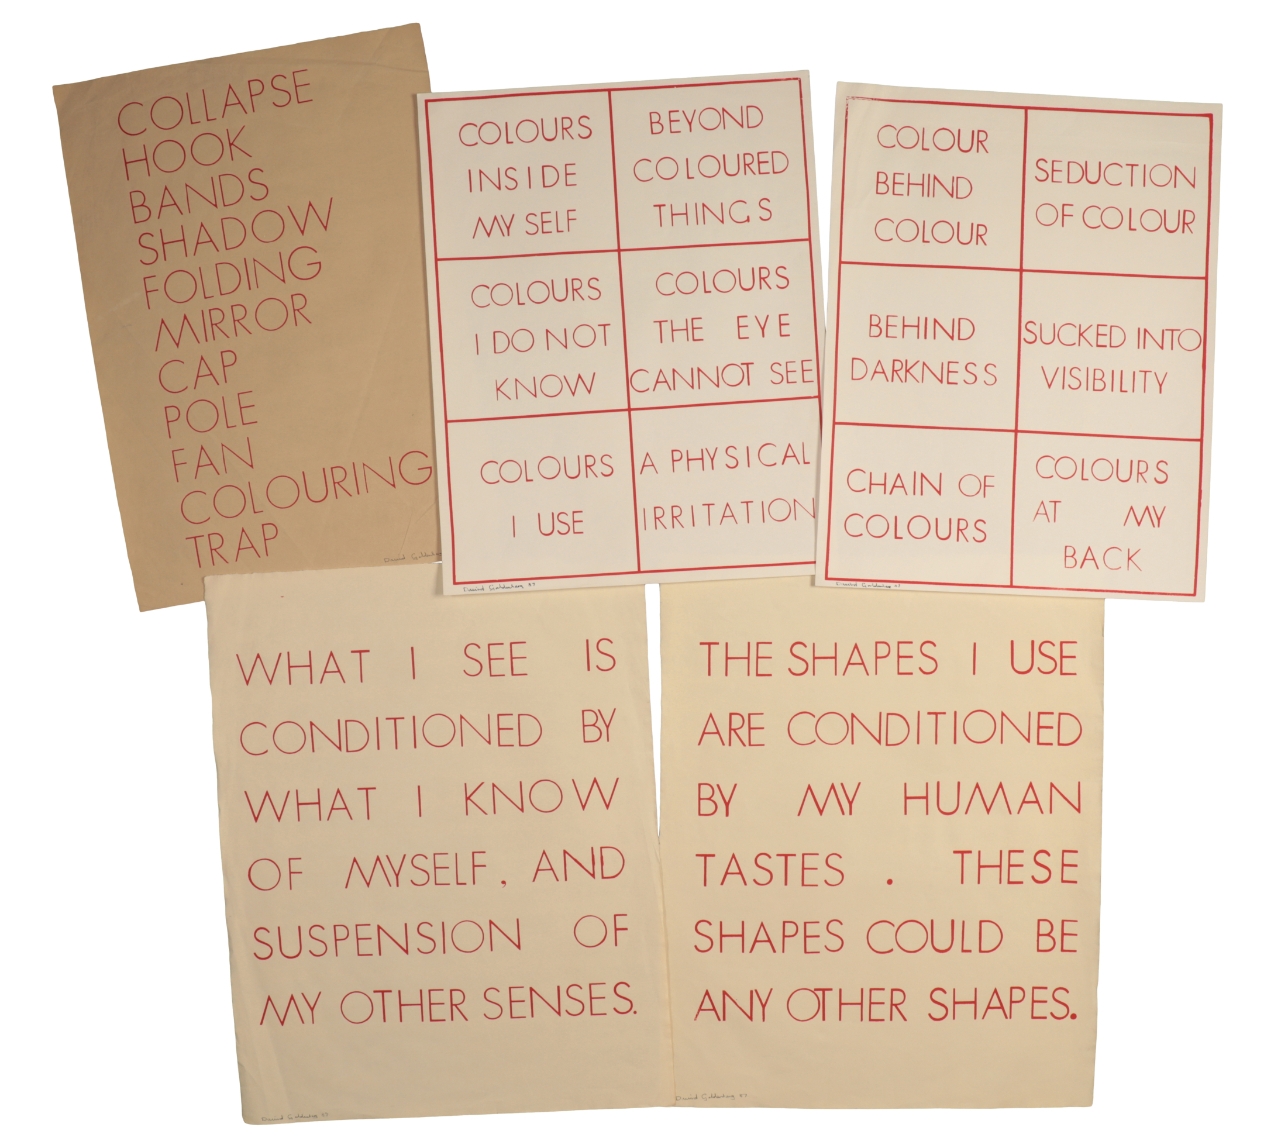 COLLAPSE
HOOK
BANDS
SHADOW
FOLDING
MIRROR
CAP
POLE
FAN
COLOURING
TRAP
David
COLOURS
INSIDE
MY SELF
BEYOND
COLOURED
THINGS
COLOURS
I DO NOT
KNOW
COLOURS
THE EYE
CANNOT SEE
COLOURS
I USE
A PHYSICAL
IRRITATION
David Goldenberg 87
COLOUR
BEHIND
COLOUR
SEDUCTION
OF COLOUR
BEHIND
DARKNESS
SUCKED INTO
VISIBILITY
CHAIN OF
COLOURS
COLOURS
AT MY
BACK
David Goldenberg 87
WHAT I SEE IS
CONDITIONED BY
WHAT I KNOW
OF MYSELF, AND
SUSPENSION OF
MY OTHER SENSES.
David Goldenberg 87
THE SHAPES I USE
ARE CONDITIONED
BY MY HUMAN
TASTES . THESE
SHAPES COULD BE
ANY OTHER SHAPES.
David Goldenberg 87